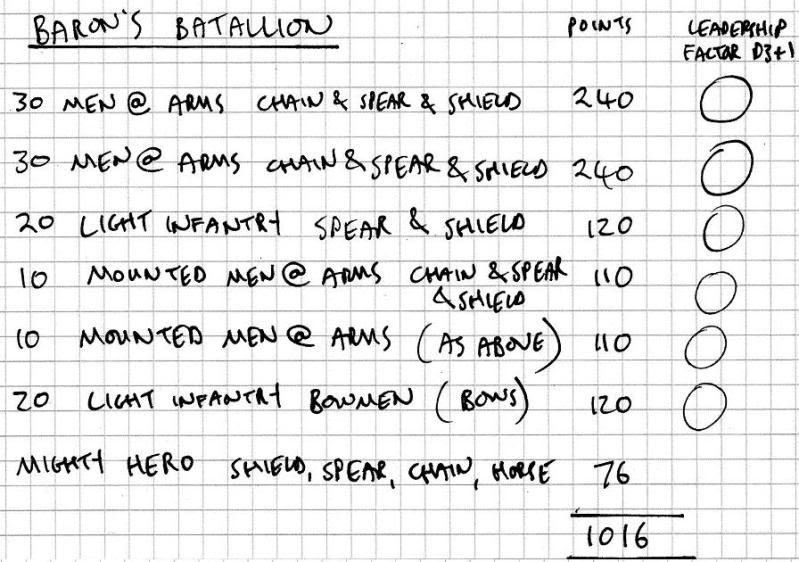 BARON'S BATALLION POINTS LEADERSHIP
FACTOR D3+1
30 MEN @ ARMS CHAIN & SPEAR & SHIELD 240
30 MEN @ ARMS CHAIN & SPEAR & SHIELD 240
20 LIGHT INFANTRY SPEAR & SHIELD 120
10 MOUNTED MEN @ ARMS CHAIN & SPEAR 110
& SHIELD
10 MOUNTED MEN @ ARMS (AS ABOVE) 110
20 LIGHT INFANTRY BOWMEN (BOWS) 120
MIGHTY HERO SHIELD, SPEAR, CHAIN, HORSE 76
1016